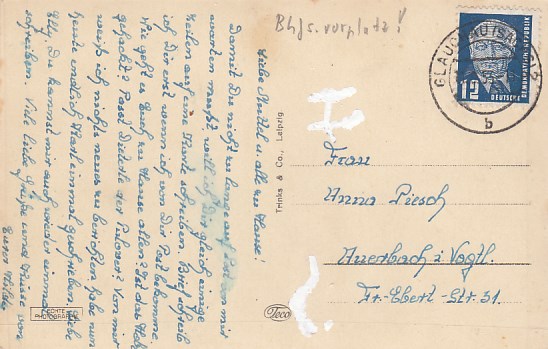 Bhfs. vorplatz!
Liebe Muttel u. alle zu Hause!
Damit Du nicht zu lange auf Post von mir
warten mußt, will ich Dir gleich einige
Zeilen auf eine Karte schreiben. Brief schreib
ich Dir erst wenn ich von Dir Post bekomme.
Wie geht es Euch zu Hause allen? Ist das Holz
gehackt? Paßt der Pulover? Von mir
weiß ich nichts neues zu berichten habe nun
heute endlich Karl einmal geschrieben. Liebe
Elly, Du kannst mir auch wieder einmal
schreiben. Viel liebe Grüße und Küsse von
Eurer
ECHTE
PHOTOGRAPHIE
Trinks & Co., Leipzig
Teco
12
DEUTSCHE
DEMOKRATISCHE REPUBLIK
GLAUCHAU (SACHS)
b
Frau
Anna Piesch
Auerbach i. Vogtl.
Fr.-Ebert-Str. 31.